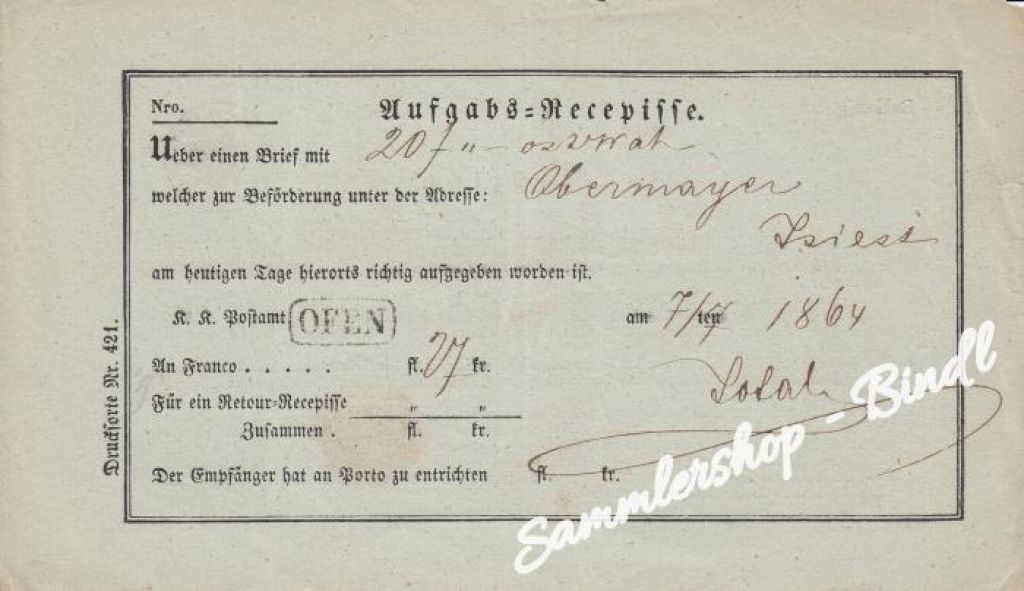 Nro.
Aufgabs=Recepisse.
Ueber einen Brief mit 20 f „ –
welcher zur Beförderung unter der Adresse: Obermayer
am heutigen Tage hierorts richtig aufgegeben worden ist.
K. K. Postamt OFEN am 7/ten 1864
An Franco . . . . . fl. 27 kr.
Für ein Retour=Recepisse „ „
Zusammen . fl. kr.
Der Empfänger hat an Porto zu entrichten fl. kr.
Drucksorte Nr. 421.
Sammlershop - Bindl